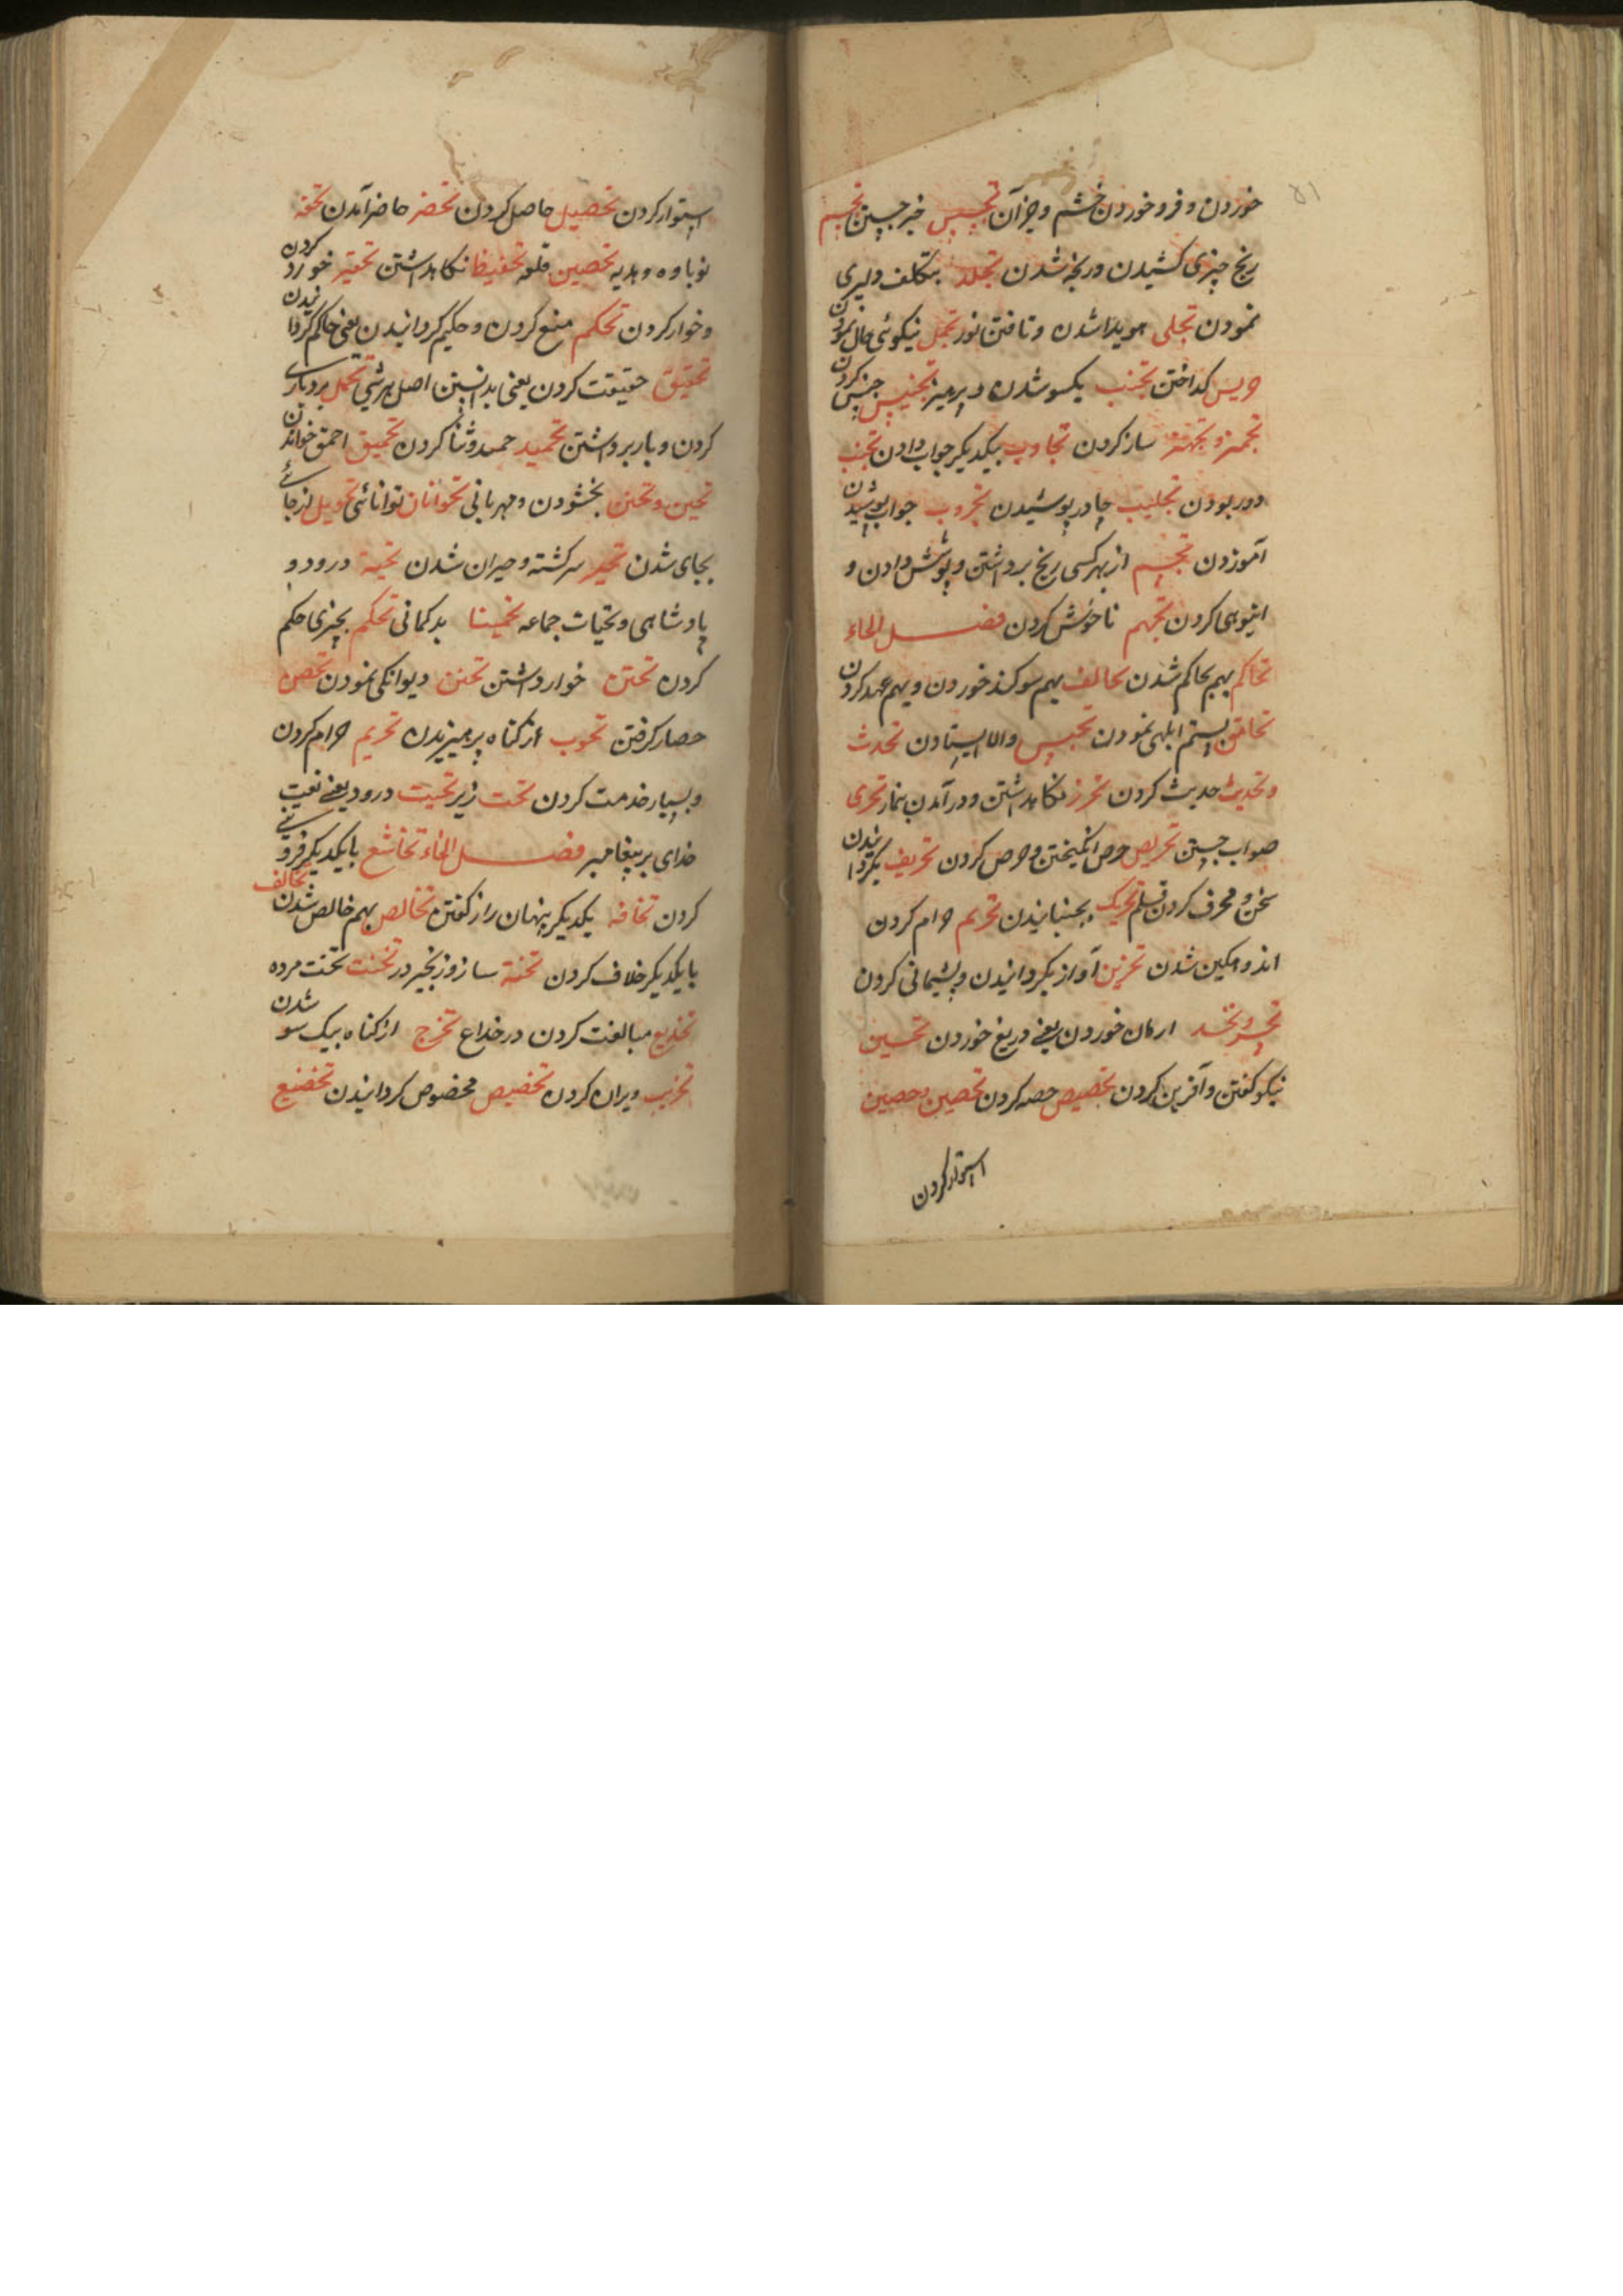 خوردن و فرو خوردن خشم و جز آن تجسس خبر جستن تجسم
رنج چیزی کشیدن و رنجه شدن تجلد بتکلف دلیری
نمودن تجلی هویدا شدن و تافتن نور تجمل نیکوئی حال نمودن
گداختن تجنب یکسو شدن و پرهیز تجنیس جنس کردن
ساز کردن تجاوب بیکدیگر جواب دادن تجنب
دور بودن تجلیب چادر پوشیدن جواب پوشیدن
آموزدن از بهر کسی رنج برداشتن و پوشش دادن و
انبوهی کردن تجهم ناخوش کردن فصل الحاء
تحاکم بهم بحاکم شدن تحالف بهم سوکند خوردن و بهم عهد کردن
تحامق بستم ابلهی نمودن تحبیس والا ایستادن تحدث
و تحدیث حدیث کردن تحرز نکاهداشتن و در آمدن بنماز تحری
صواب جستن تحریص حرص انگیختن و حرص کردن تحریف بگردانیدن
سخن و محرف کردن قلم تحریک بجنبانیدن تحریم حرام کردن
اندوهکین شدن تحزین آواز بگردانیدن و پشیمانی کردن
ارمان خوردن یعنی دریغ خوردن تحسین
نیکو گفتن و آفرین کردن تحصیص حصه کردن تحصین وحصین
استوار کردن
استوار کردن تحصیل حاصل کردن تحضر حاضر آمدن تحفه
نوباوه و هدیه تحصین قلعه تحفیظا نکاهداشتن تحقیر خورد کردن
و خوار کردن تحکم منع کردن و حکیم کردانیدن یعنی حاکم کردانیدن
تحقیق حقیقت کردن یعنی بدانستن اصل هر شی تحمل بردباری
کردن و بار برداشتن تحمید حمد و ثنا کردن تحمیق احمق خواندن
تحین و تحنن بخشودن و مهربانی تحوانان توانائی تحویل از جائے
بجای شدن تحیر سرکشته و حیران شدن تحیة درود و
پادشاهی و تحیات جماعه تخمینا بدکمانی تحکم بچیزی حکم
کردن خوار داشتن تحنن دیوانکی نمودن تحصن
حصار کرفتن تحوب از کناه پرهیزیدن تحریم حرام کردن
و بسیار خدمت کردن تحت زیر تحیت درود یعنی نعت
خدای بر پیغامبر فصل الخاء تخاشع بایکدیکر فروتنی
کردن تخافه یکدیکر پنهان راز کفتن تخالص بهم خالص شدن تخالف
بایکدیکر خلاف کردن تخنة ساز و زنجیر در تخنت تخت مرده
تخدیع مبالغت کردن در خداع تخرج از کناه بیک سو شدن
تخریب ویران کردن تخصیص مخصوص کردانیدن تخضیع